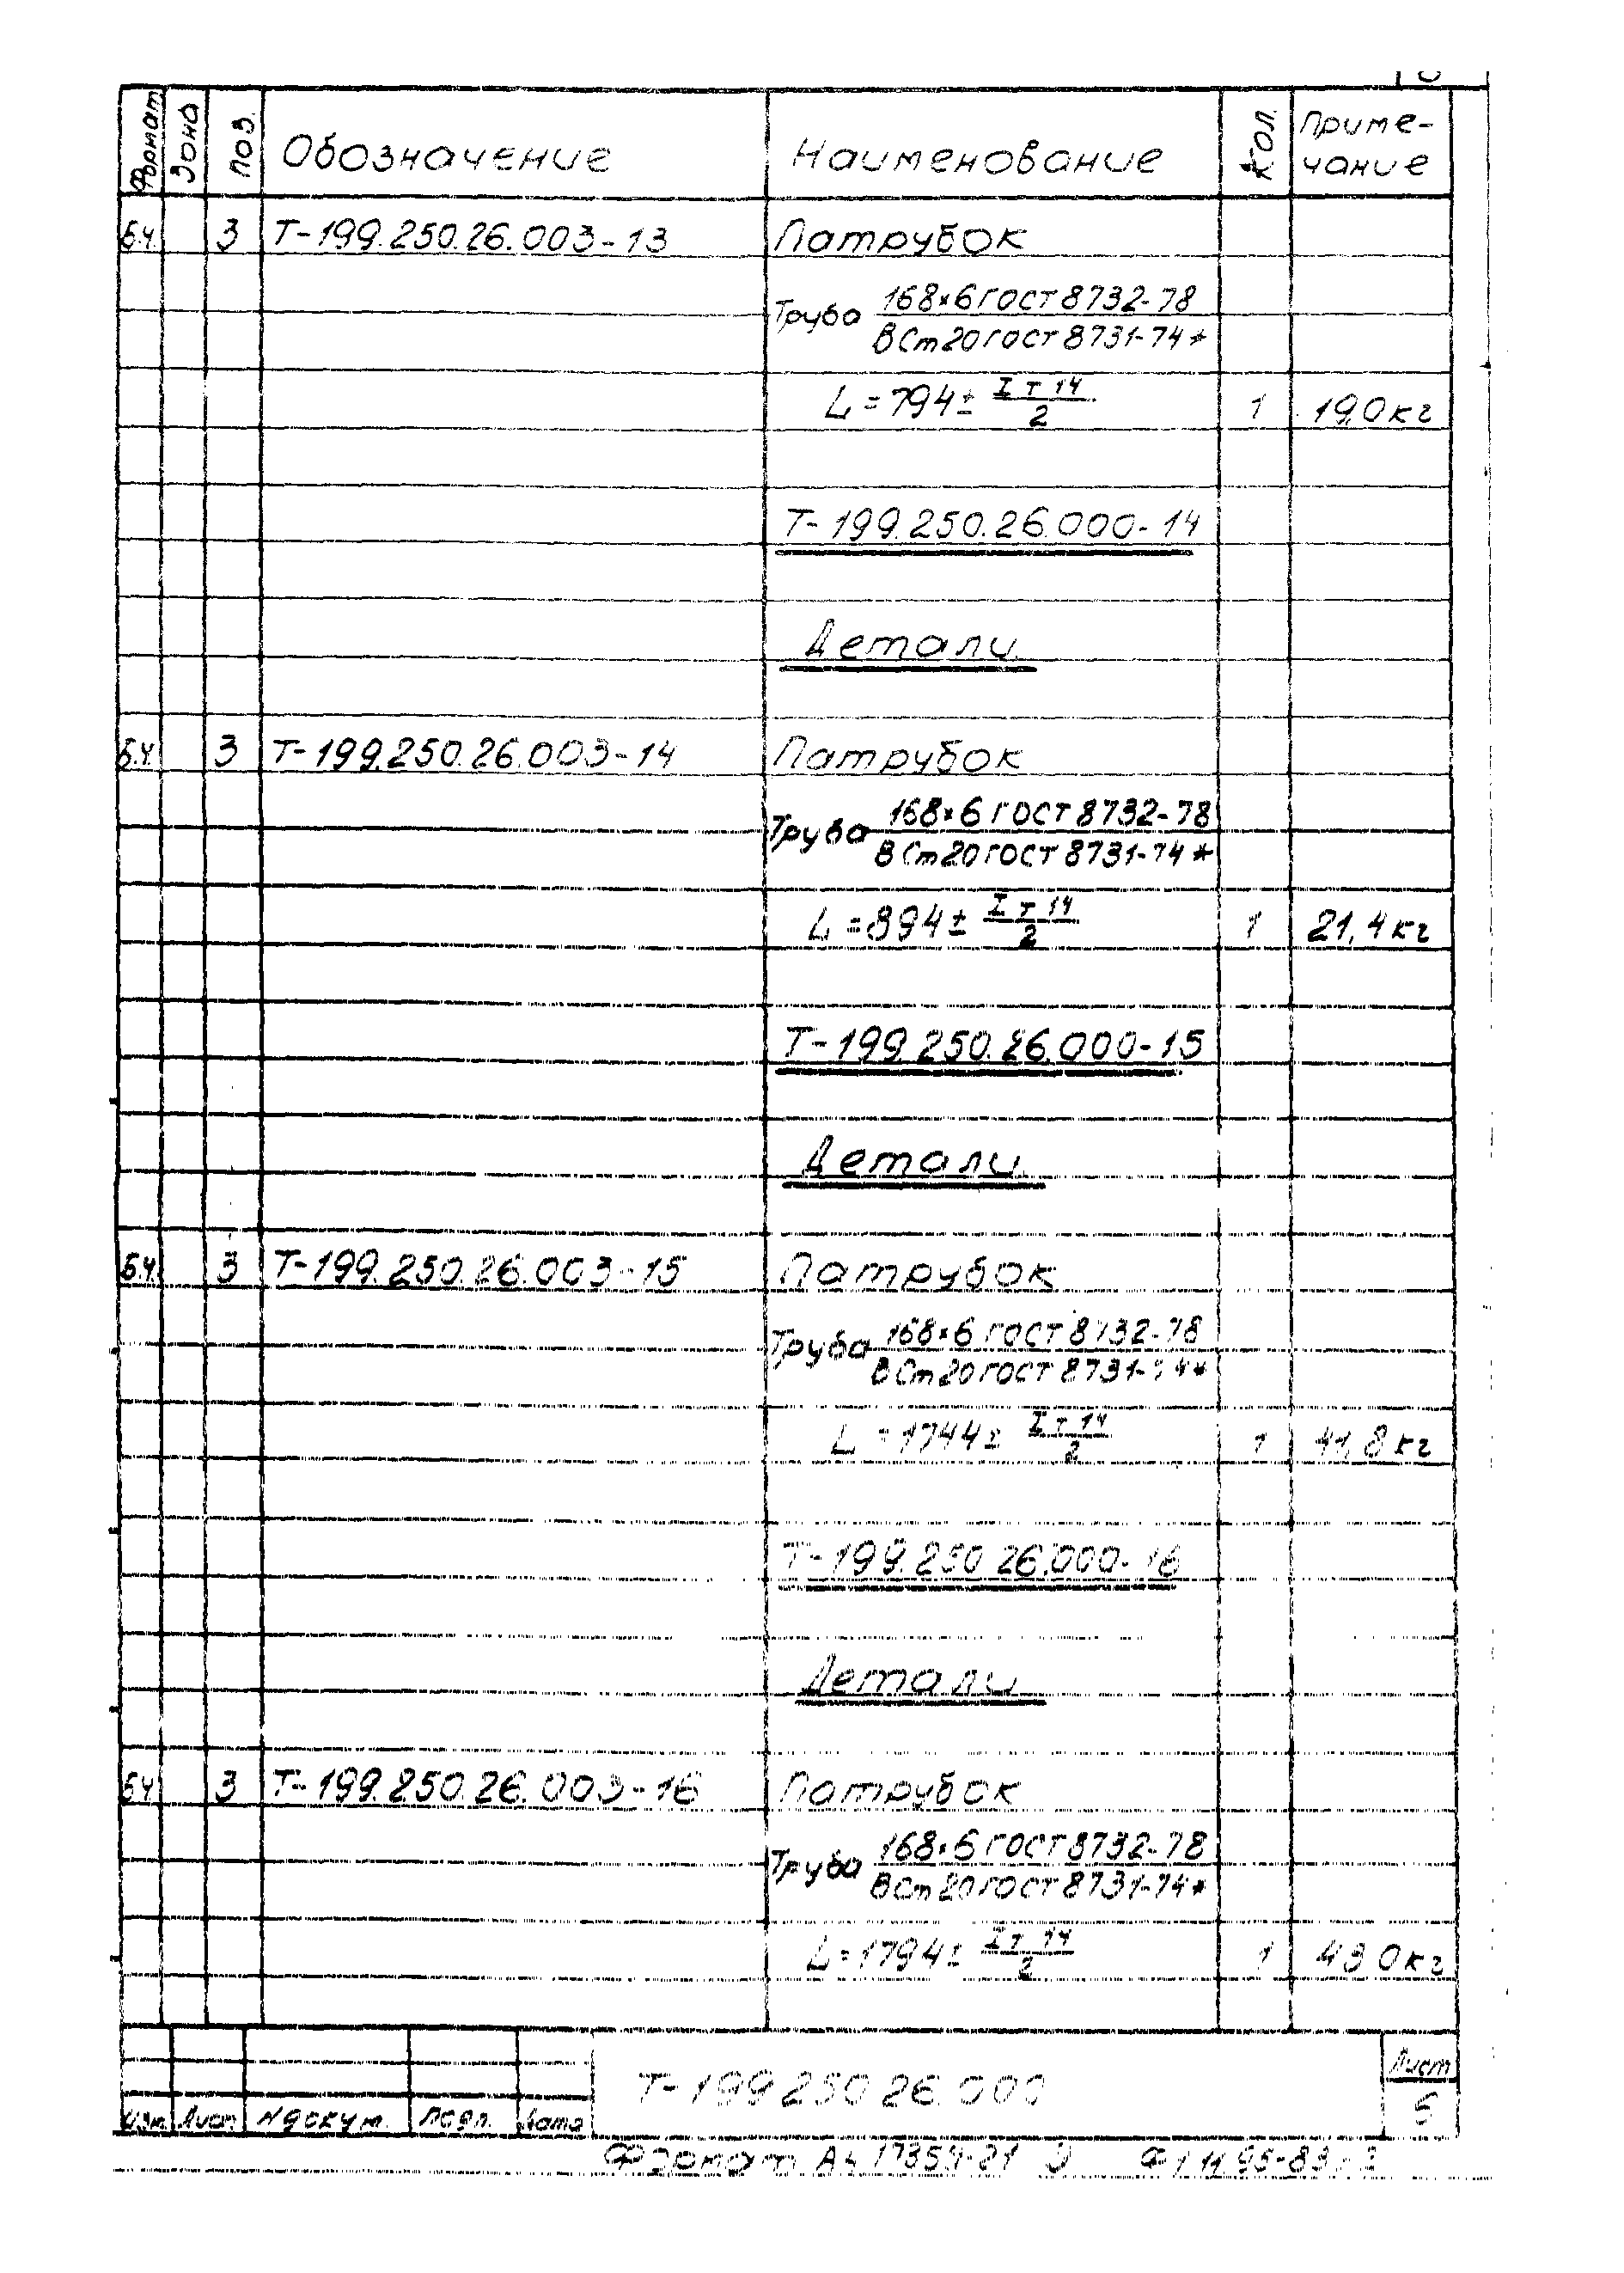 Формат Зона Поз. Обозначение Наименование Кол. Приме-
чание
Б.Ч. 3 Т-199.250.26.003-13 Патрубок
Труба 168×6 ГОСТ 8732-78
ВСт20 ГОСТ 8731-74*
L=794± IT14/2 1 19,0кг
Т-199.250.26.000-14
Детали
Б.Ч. 3 Т-199.250.26.003-14 Патрубок
Труба 168×6 ГОСТ 8732-78
ВСт20 ГОСТ 8731-74*
L=894± IT14/2 1 21,4кг
Т-199.250.26.000-15
Детали
Б.Ч. 3 Т-199.250.26.003-15 Патрубок
Труба 168×6 ГОСТ 8732-78
ВСт20 ГОСТ 8731-74*
L=1744± IT14/2 1 41,8кг
Т-199.250.26.000-16
Детали
Б.Ч. 3 Т-199.250.26.003-16 Патрубок
Труба 168×6 ГОСТ 8732-78
ВСт20 ГОСТ 8731-74*
L=1794± IT14/2 1 43,0кг
Т-199.250.26.000 Лист
Изм. Лист № докум. Подп. Дата
Формат А4